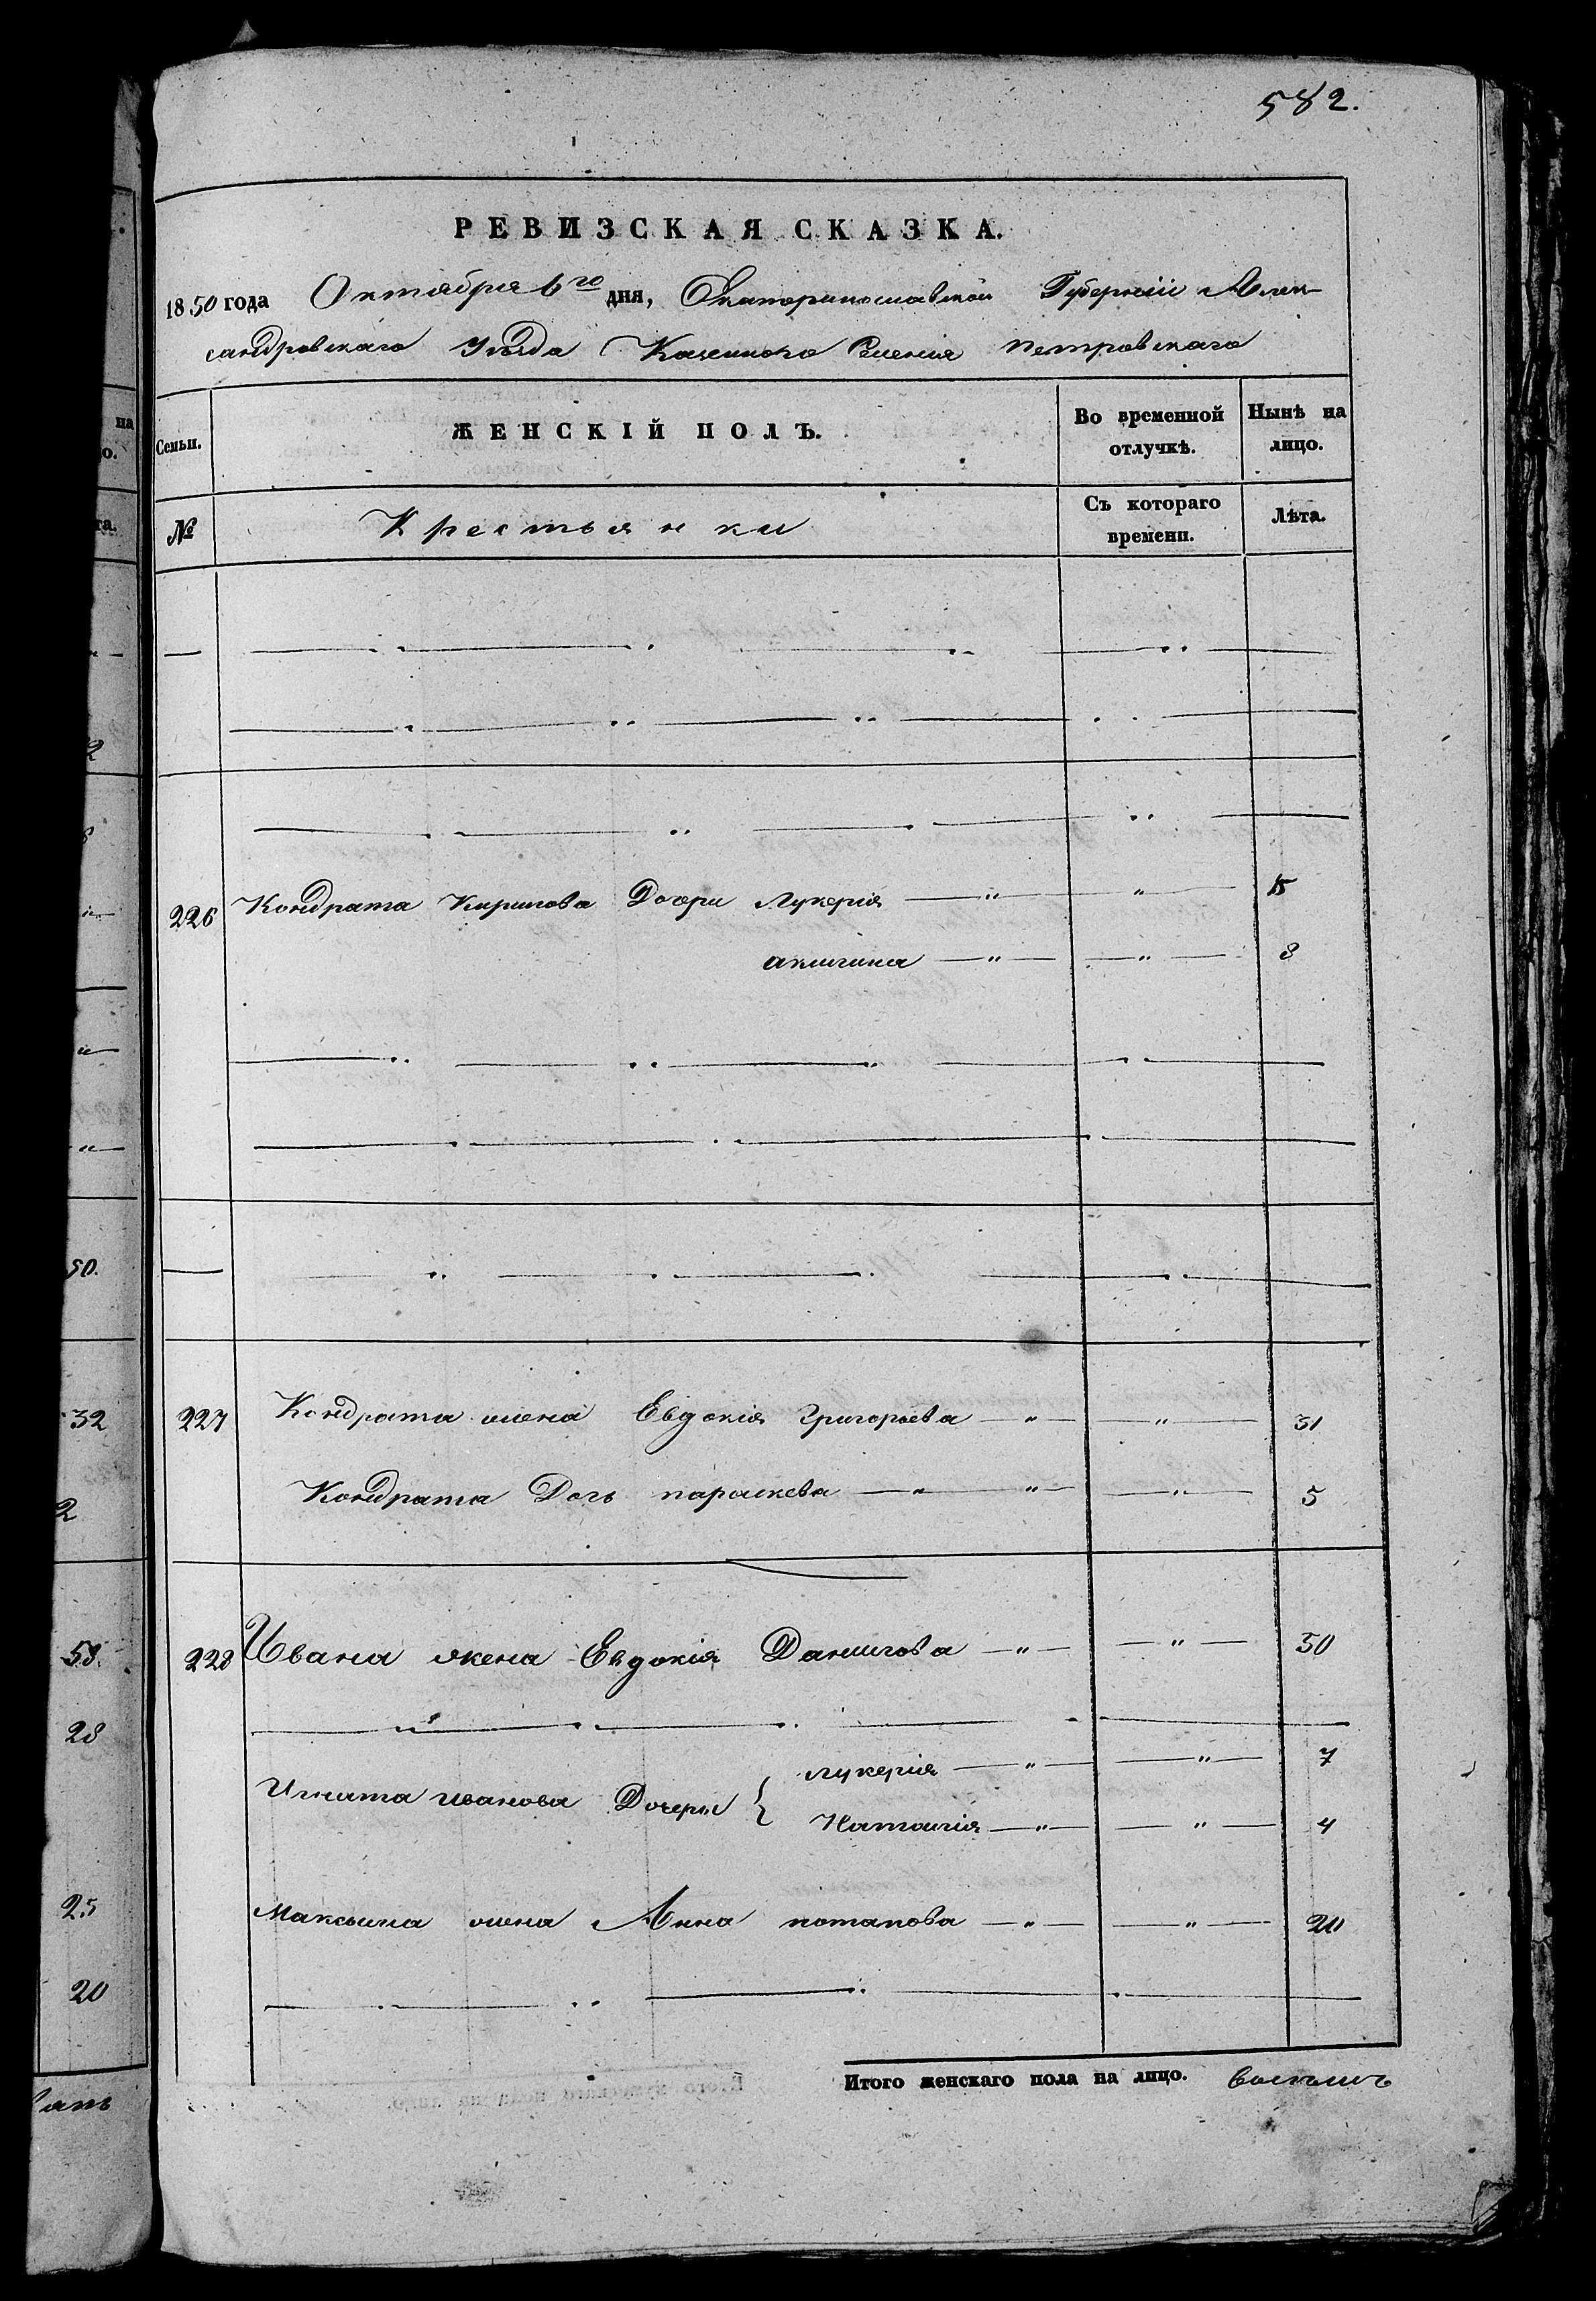 582.
РЕВИЗСКАЯ СКАЗКА.
1850 года Октября 6го дня, Екатеринославской Губернiи Алек-
сандровскаго Уѣзда Казеннаго Селенiя Петровскаго
Семьи. ЖЕНСКІЙ ПОЛЪ. Во временной отлучкѣ. Нынѣ на лицо.
№ Крестьянки Съ котораго времени. Лѣта.
226 Кондрата Кирилова Дочери Лукерiя — " — " — 15
акилина — " — " — 8
227 Кондрата жена Евдокiя Григорьева — " — " — 31
Кондрата Дочь параскева — " — " — " — 5
228 Ивана жена Евдокiя Данилова — " — " — 50
лукерiя — " — " — 7
Игната иванова Дочери {
Наталiя — " — " — 4
Максима жена Анна потапова — " — " — 20
Итого женскаго пола на лицо. восемь